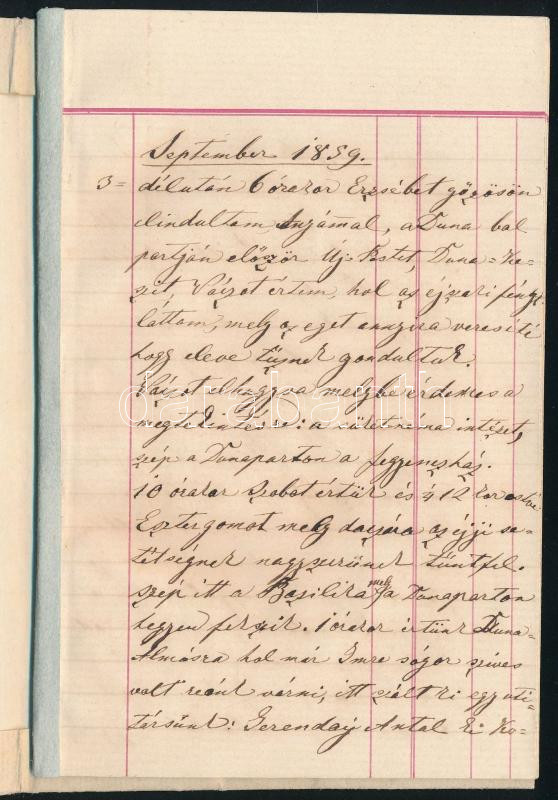 September 1859.
3= délután 6 órakor Erzsébet gőzösön
elindultam Anyámal, a Duna bal
partján először Új-Pestet, Duna=Ke=
szit, Váczot értem, hol az éjszaki fényt
láttam, mely az eget annyira veresíti
hogy eleve tűznek gondoltuk.
Váczot elhagyva melybe érdemes a
megtekintésre: a süketnéma intézet,
szép a Dunaparton a fegyenczház.
10 órakor Szobot értük és 1/4 12 kor estve
Esztergomot mely daczára az éjji se=
tétségnek nagyszerűnek tűnt fel.
szép itt a Basilika mely a Dunaparton
hegyen fekszik. 1 órakor értünk Duna=
Almásra hol már Imre sógor szives
volt reánk várni, itt szált ki egy uti=
társunk: Gerenday Antal ki Ko=
darabanth